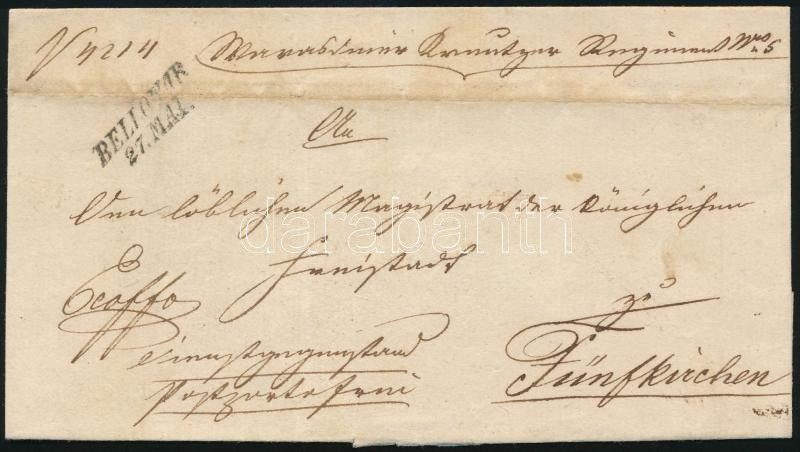 N 4214 Warasdiner Kreutzer Regiment Nro 5
BELLOVAR
27. MAI.
An
Den löblichen Magistrat der Königlichen
Freistadt
zu
Ex offo
Dienstgegenstand
Postportofrei
Fünfkirchen
darabanth